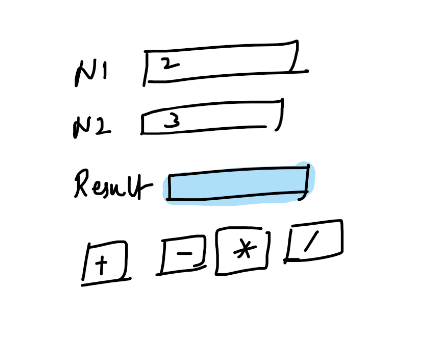 N1 2
N2 3
Result
+ - * /